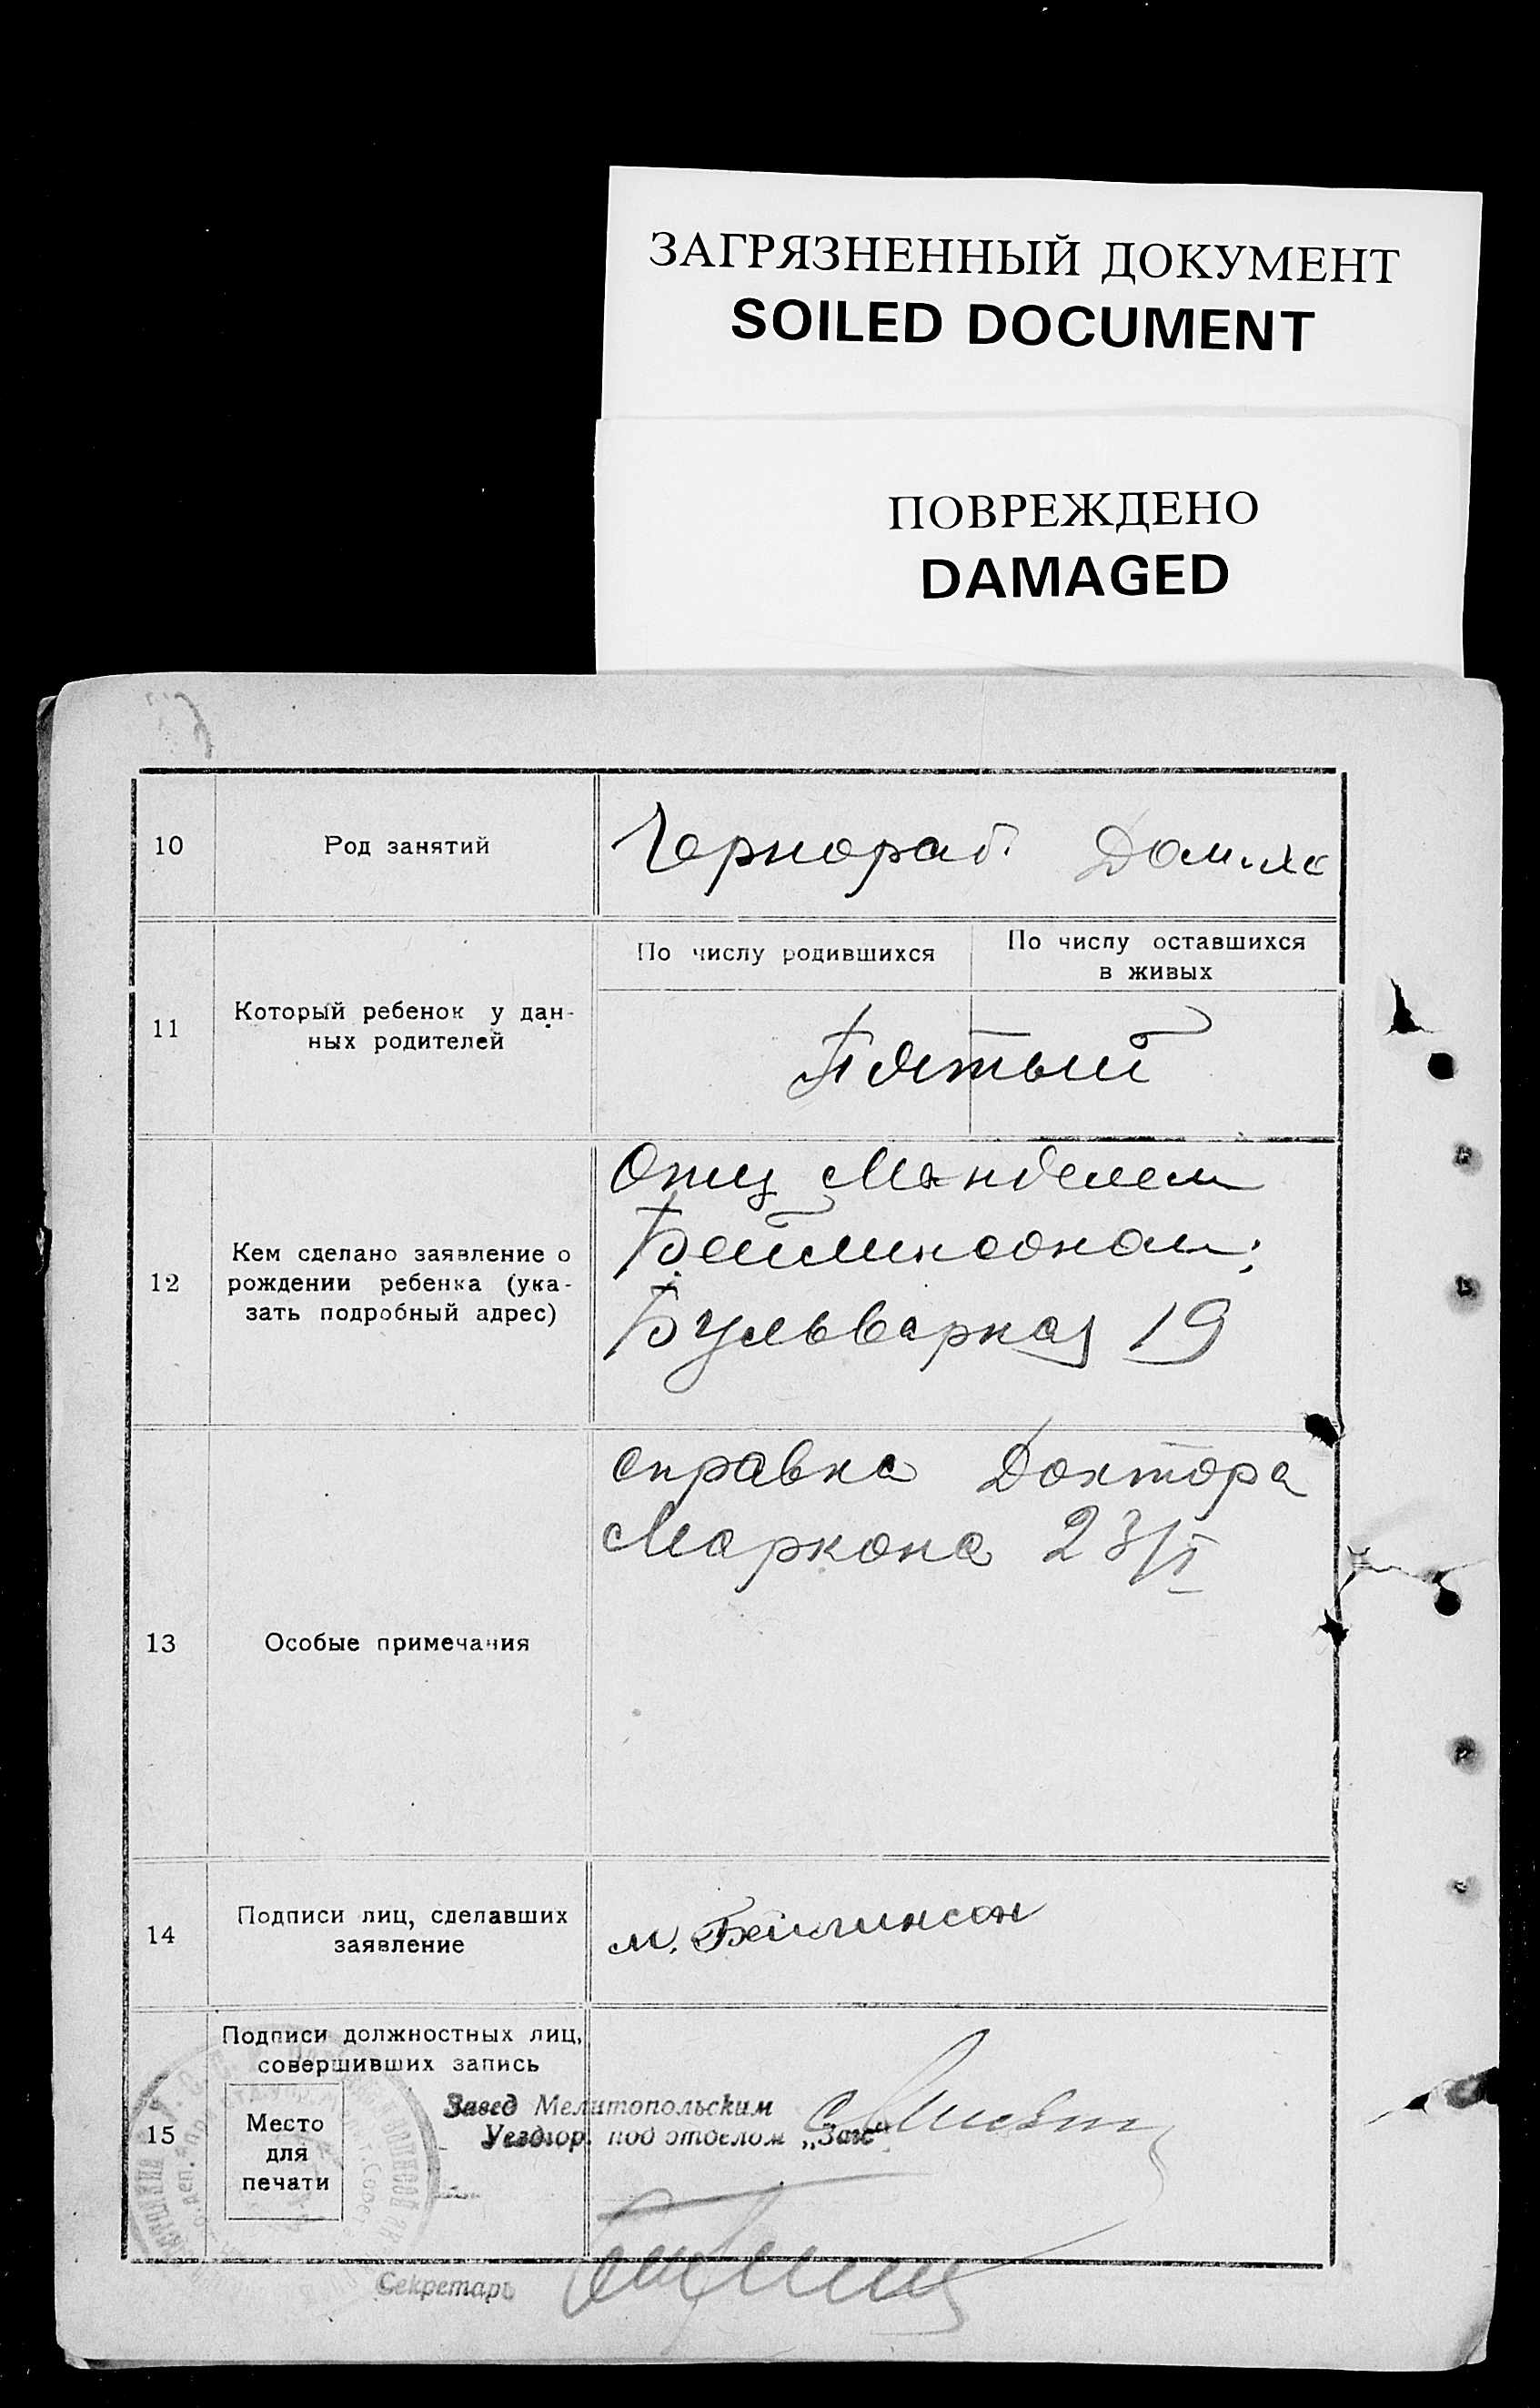 ЗАГРЯЗНЕННЫЙ ДОКУМЕНТ
SOILED DOCUMENT
ПОВРЕЖДЕНО
DAMAGED
10
Род занятий
Чернораб. Дом. хоз
11
Который ребенок у дан-
ных родителей
По числу родившихся
По числу оставшихся
в живых
Пятый
12
Кем сделано заявление о
рождении ребенка (ука-
зать подробный адрес)
Отц Менделем
Бейлинсоном;
Бульварная 19
13
Особые примечания
справка Доктора
Маркона 23/I
14
Подписи лиц, сделавших
заявление
М. Бейлинсон
15
Подписи должностных лиц,
совершивших запись
Место
для
печати
Завед Мелитопольским
Уездгор. под отделом „Загс“
Секретарь